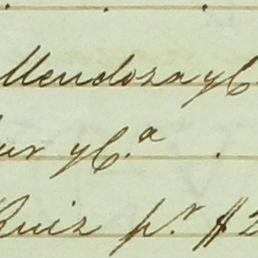 Mendoza y C
y C.a
Ruiz pr. $2